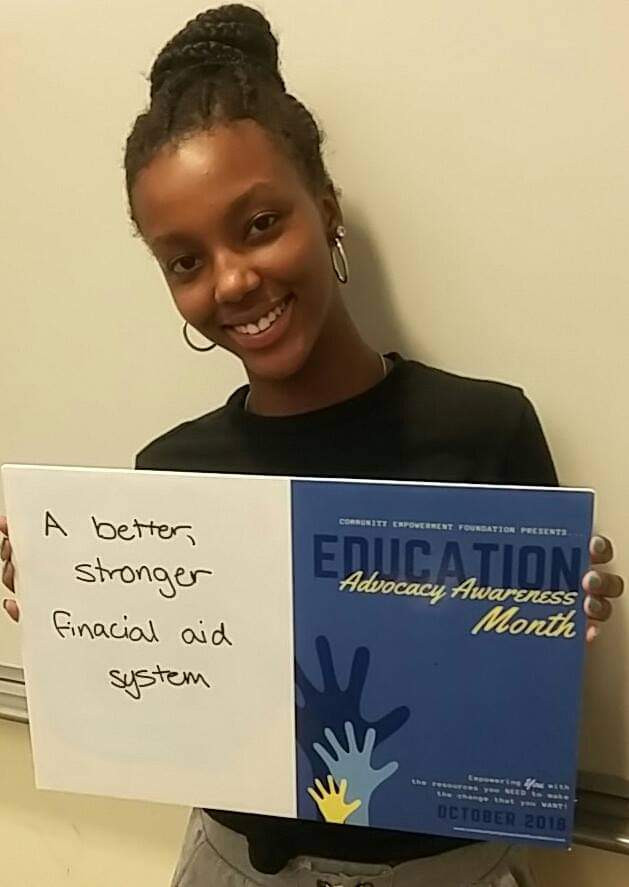 A better,
stronger
finacial aid
system
COMMUNITY EMPOWERMENT FOUNDATION PRESENTS...
EDUCATION
Advocacy Awareness
Month
Empowering You with
the resources you NEED to make
the change that you WANT!
OCTOBER 2018